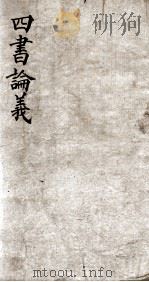 四書論義
mtoou.info